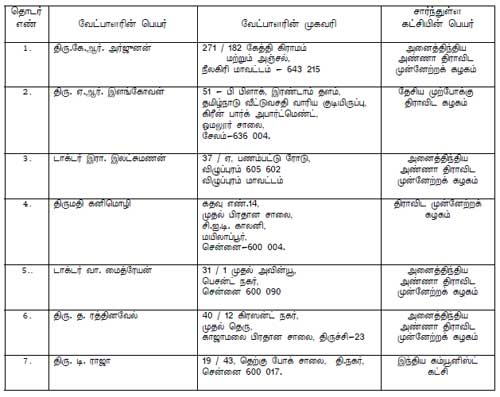 தொடர் எண்
வேட்பாளரின் பெயர்
வேட்பாளரின் முகவரி
சார்ந்துள்ள கட்சியின் பெயர்
1.
திரு.கே.ஆர். அர்ஜுனன்
271 / 182 கேத்தி கிராமம்
மற்றும் அஞ்சல்,
நீலகிரி மாவட்டம் - 643 215
அனைத்திந்திய
அண்ணா திராவிட
முன்னேற்றக் கழகம்
2.
திரு. ஏ.ஆர். இளங்கோவன்
51 - பி பிளாக், இரண்டாம் தளம்,
தமிழ்நாடு வீட்டுவசதி வாரிய குடியிருப்பு,
கிரீன் பார்க் அபார்ட்மெண்ட்,
ஓமலூர் சாலை,
சேலம்-636 004.
தேசிய முற்போக்கு
திராவிட கழகம்
3.
டாக்டர் இரா. இலட்சுமணன்
37 / ஏ, பணம்பட்டு ரோடு,
விழுப்புரம் 605 602
விழுப்புரம் மாவட்டம்
அனைத்திந்திய
அண்ணா திராவிட
முன்னேற்றக் கழகம்
4.
திருமதி கனிமொழி
கதவு எண்.14,
முதல் பிரதான சாலை,
சி.ஐ.டி. காலனி,
மயிலாப்பூர்,
சென்னை-600 004.
திராவிட முன்னேற்றக்
கழகம்
5..
டாக்டர் வா. மைத்ரேயன்
31 / 1 முதல் அவின்யூ,
பெசன்ட் நகர்,
சென்னை 600 090
அனைத்திந்திய
அண்ணா திராவிட
முன்னேற்றக் கழகம்
6.
திரு. த. ரத்தினவேல்
40 / 12 கிரஸன்ட் நகர்,
முதல் தெரு,
காஜாமலை பிரதான சாலை, திருச்சி-23
அனைத்திந்திய
அண்ணா திராவிட
முன்னேற்றக் கழகம்
7.
திரு. டி. ராஜா
19 / 43, தெற்கு போக் சாலை, தி.நகர்,
சென்னை 600 017.
இந்திய கம்யூனிஸ்ட்
கட்சி